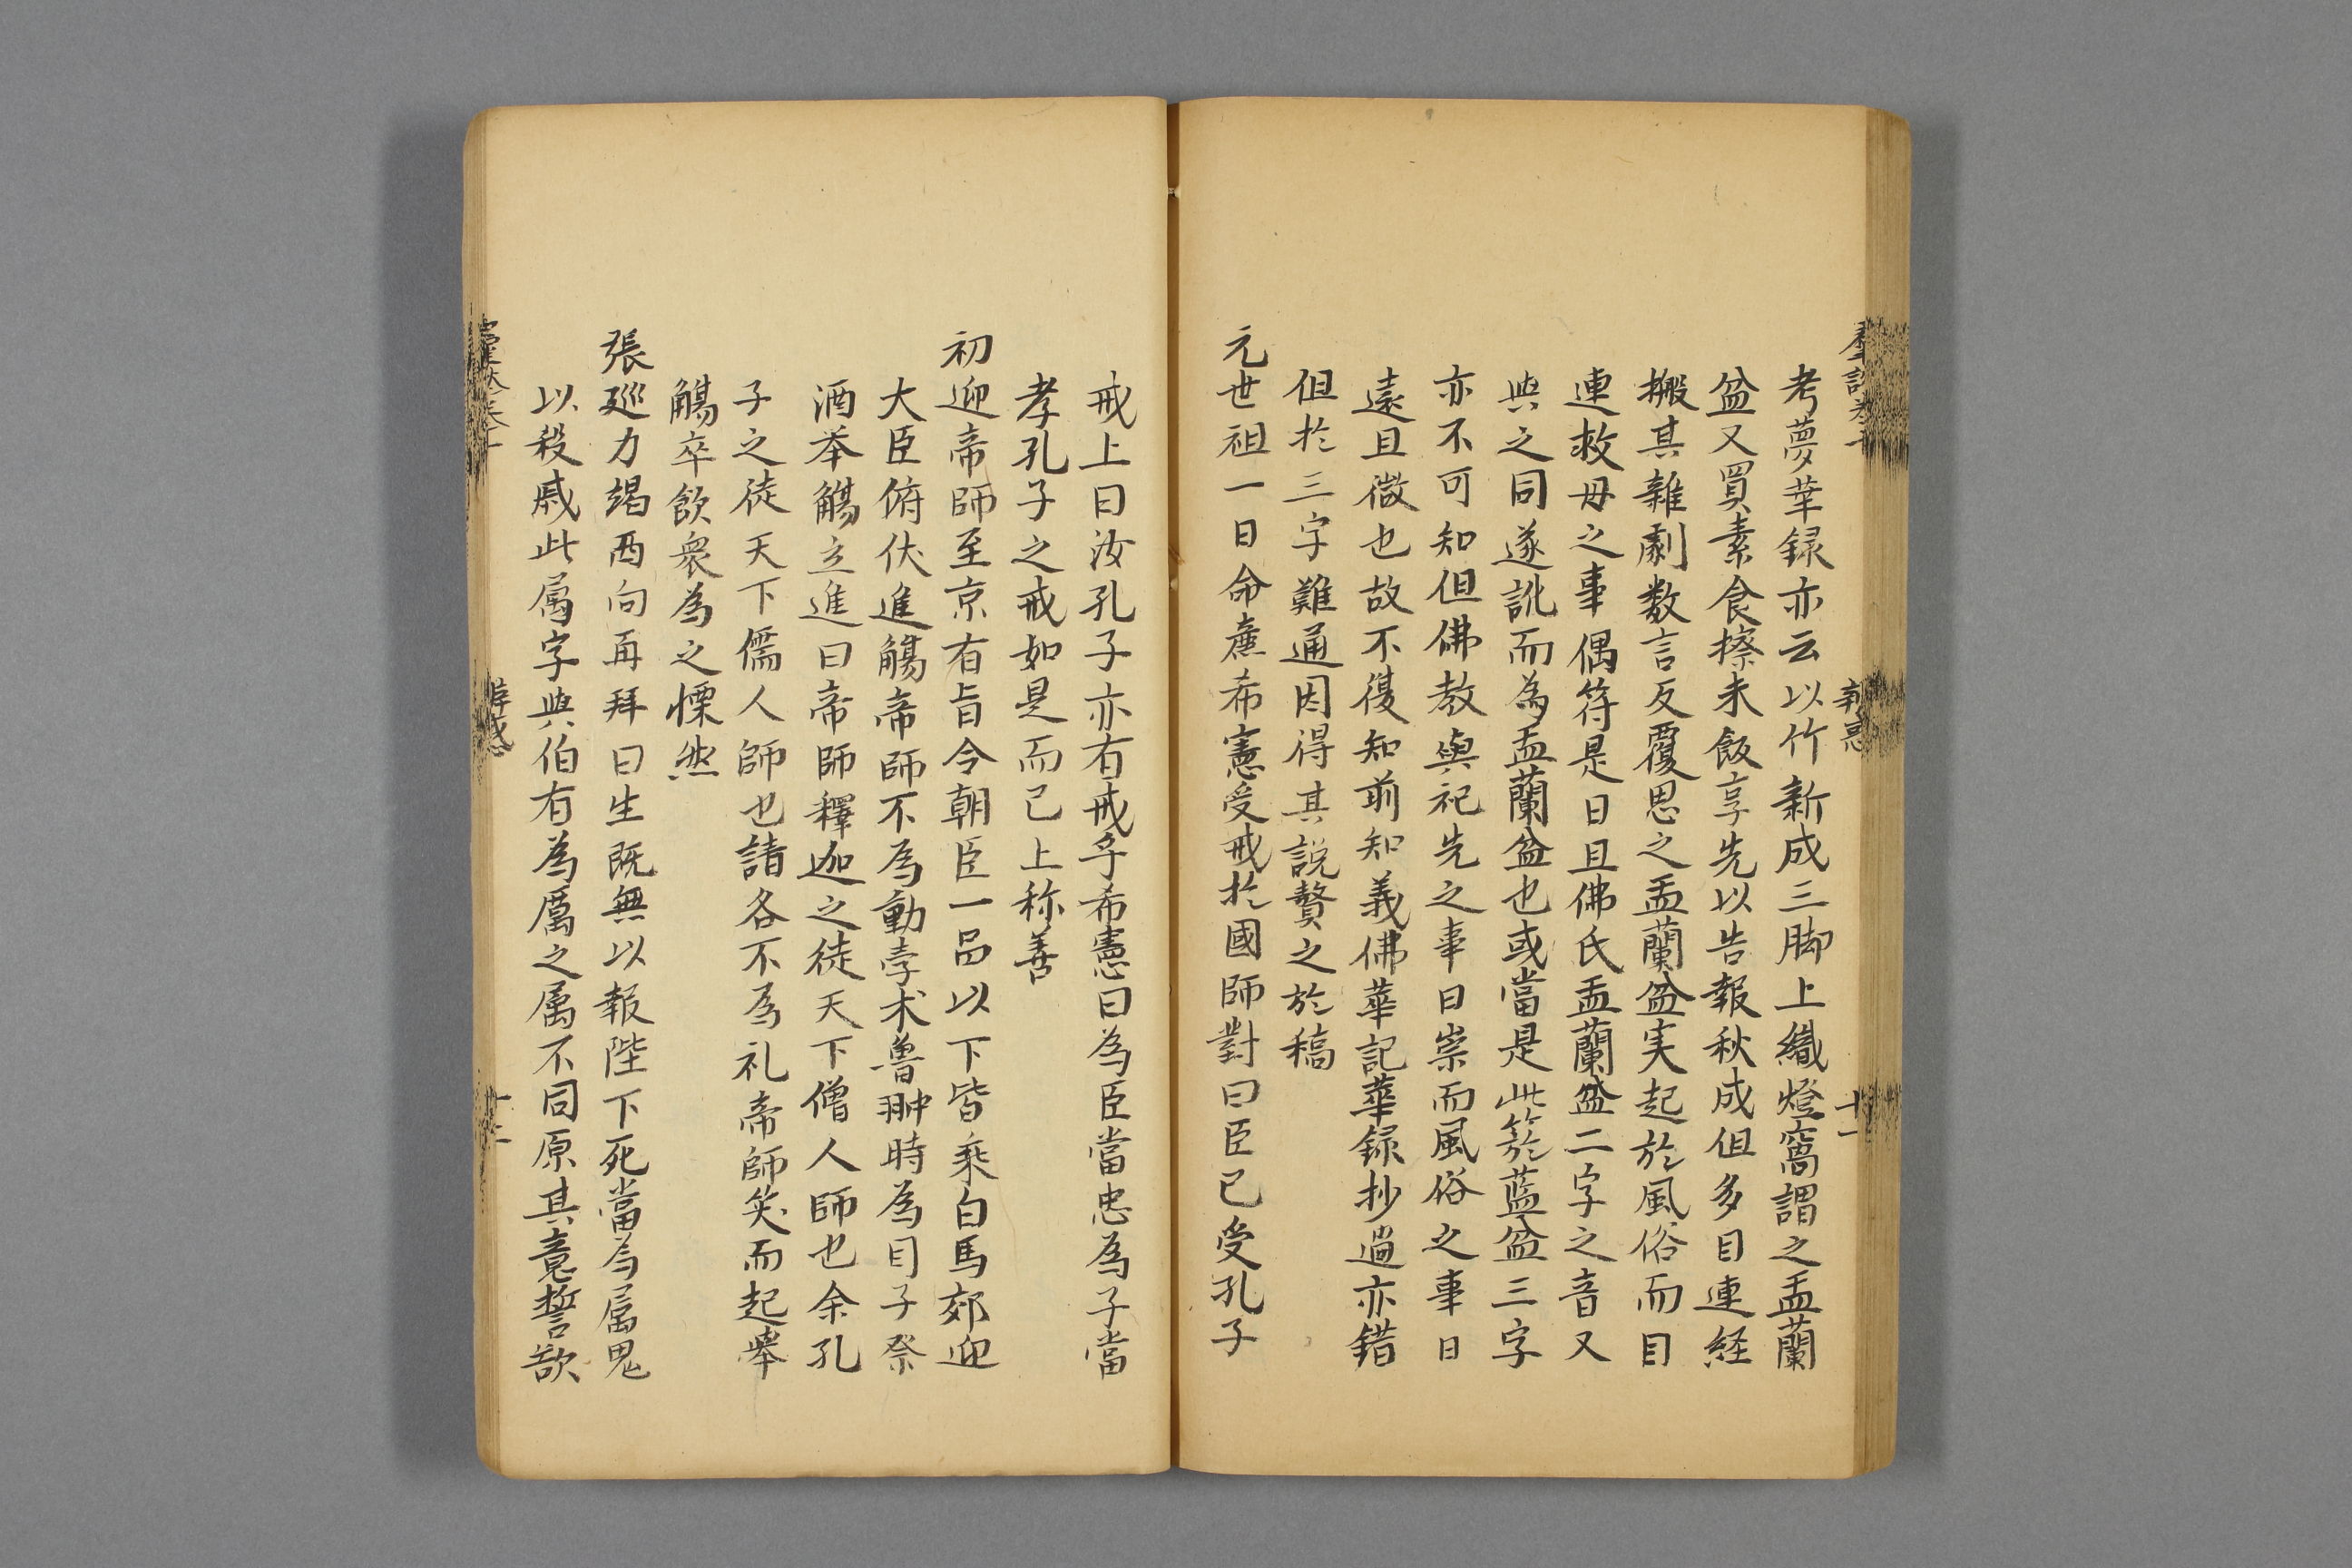 考夢華録亦云以竹新成三脚上織燈窩謂之盂蘭
盆又買素食擦米飯享先以告報秋成但多目連経
搬其雜劇数言反覆思之盂蘭盆実起於風俗而目
連救母之事偶符是日且佛氏盂蘭盆二字之音又
與之同遂訛而為盂蘭盆也或當是此箊蓝盆三字
亦不可知但佛教與祀先之事日崇而風俗之事日
遠且微也故不復知前知義佛華記華録抄過亦錯
但於三字難通因得其説贅之於稿
元世祖一日命廉希憲受戒於國師對曰臣已受孔子
戒上曰汝孔子亦有戒乎希憲曰為臣當忠為子當
孝孔子之戒如是而已上称善
初迎帝師至京有旨令朝臣一品以下皆乘白馬郊迎
大臣俯伏進觴帝師不為動孛术魯翀時為国子祭
酒举觴立進曰帝師釋迦之徒天下僧人師也余孔
子之徒天下儒人師也請各不為礼帝師笑而起舉
觴卒飲衆為之慄然
張廵力竭西向再拜曰生既無以報陛下死當為厲鬼
以殺贼此属字與伯有為厲之属不同原其意誓欲
辨惑
十一